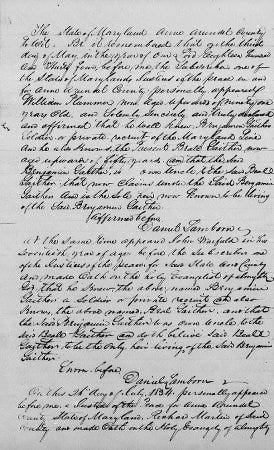 The State of Maryland Anne Arundel County
to Wit. Be it remembered that on the third
day of May in the year of our Lord Eighteen Hundred
And Thirty four, before me the Subscriber one of
the State of Maryland Justices of the peace in and
for Anne Arundel County personally appeared
William Hammon now aged upwards of ninety one
years Old and Solemly Sincerely and truly declared
and affirmed that he well knew Benjamin Gaither
Soldier or private recruit of the Maryland Line
And he also knows the present Beale Gaither now
aged upward of fifty years and that the Said
Benjamin Gaither is own Uncle to the Said Beale
Gaither that now Claims under the Said Benjamin
Gaither And is the only one now known to be living
of the Said Benjamin Gaither
Affirmed before
Daniel Lamborn
At the Same time appeared John Warfield in his
Seventieth year of age before the Subscriber one
of the Justices of the peace for said State And County
And made Oath on the Holy Evangelist of Almighty
God that he knew the above named Benjamin
Gaither a Soldier or private recruit and also
knows the above named Beal Gaither, and that
the Said Benjamin Gaither was own Uncle to the
Said Beale Gaither and do th believe Said Beale
Gaither to be the Only heir living of the Said Benjamin
Gaither
Sworn before
Daniel Lamborn
On this day of July 1834 personally appeared
before me a Justice of the Peace for Anne Arundel
County State of Maryland, Richard Martin of Said
County and made Oath on the Holy Evangely of Almighty